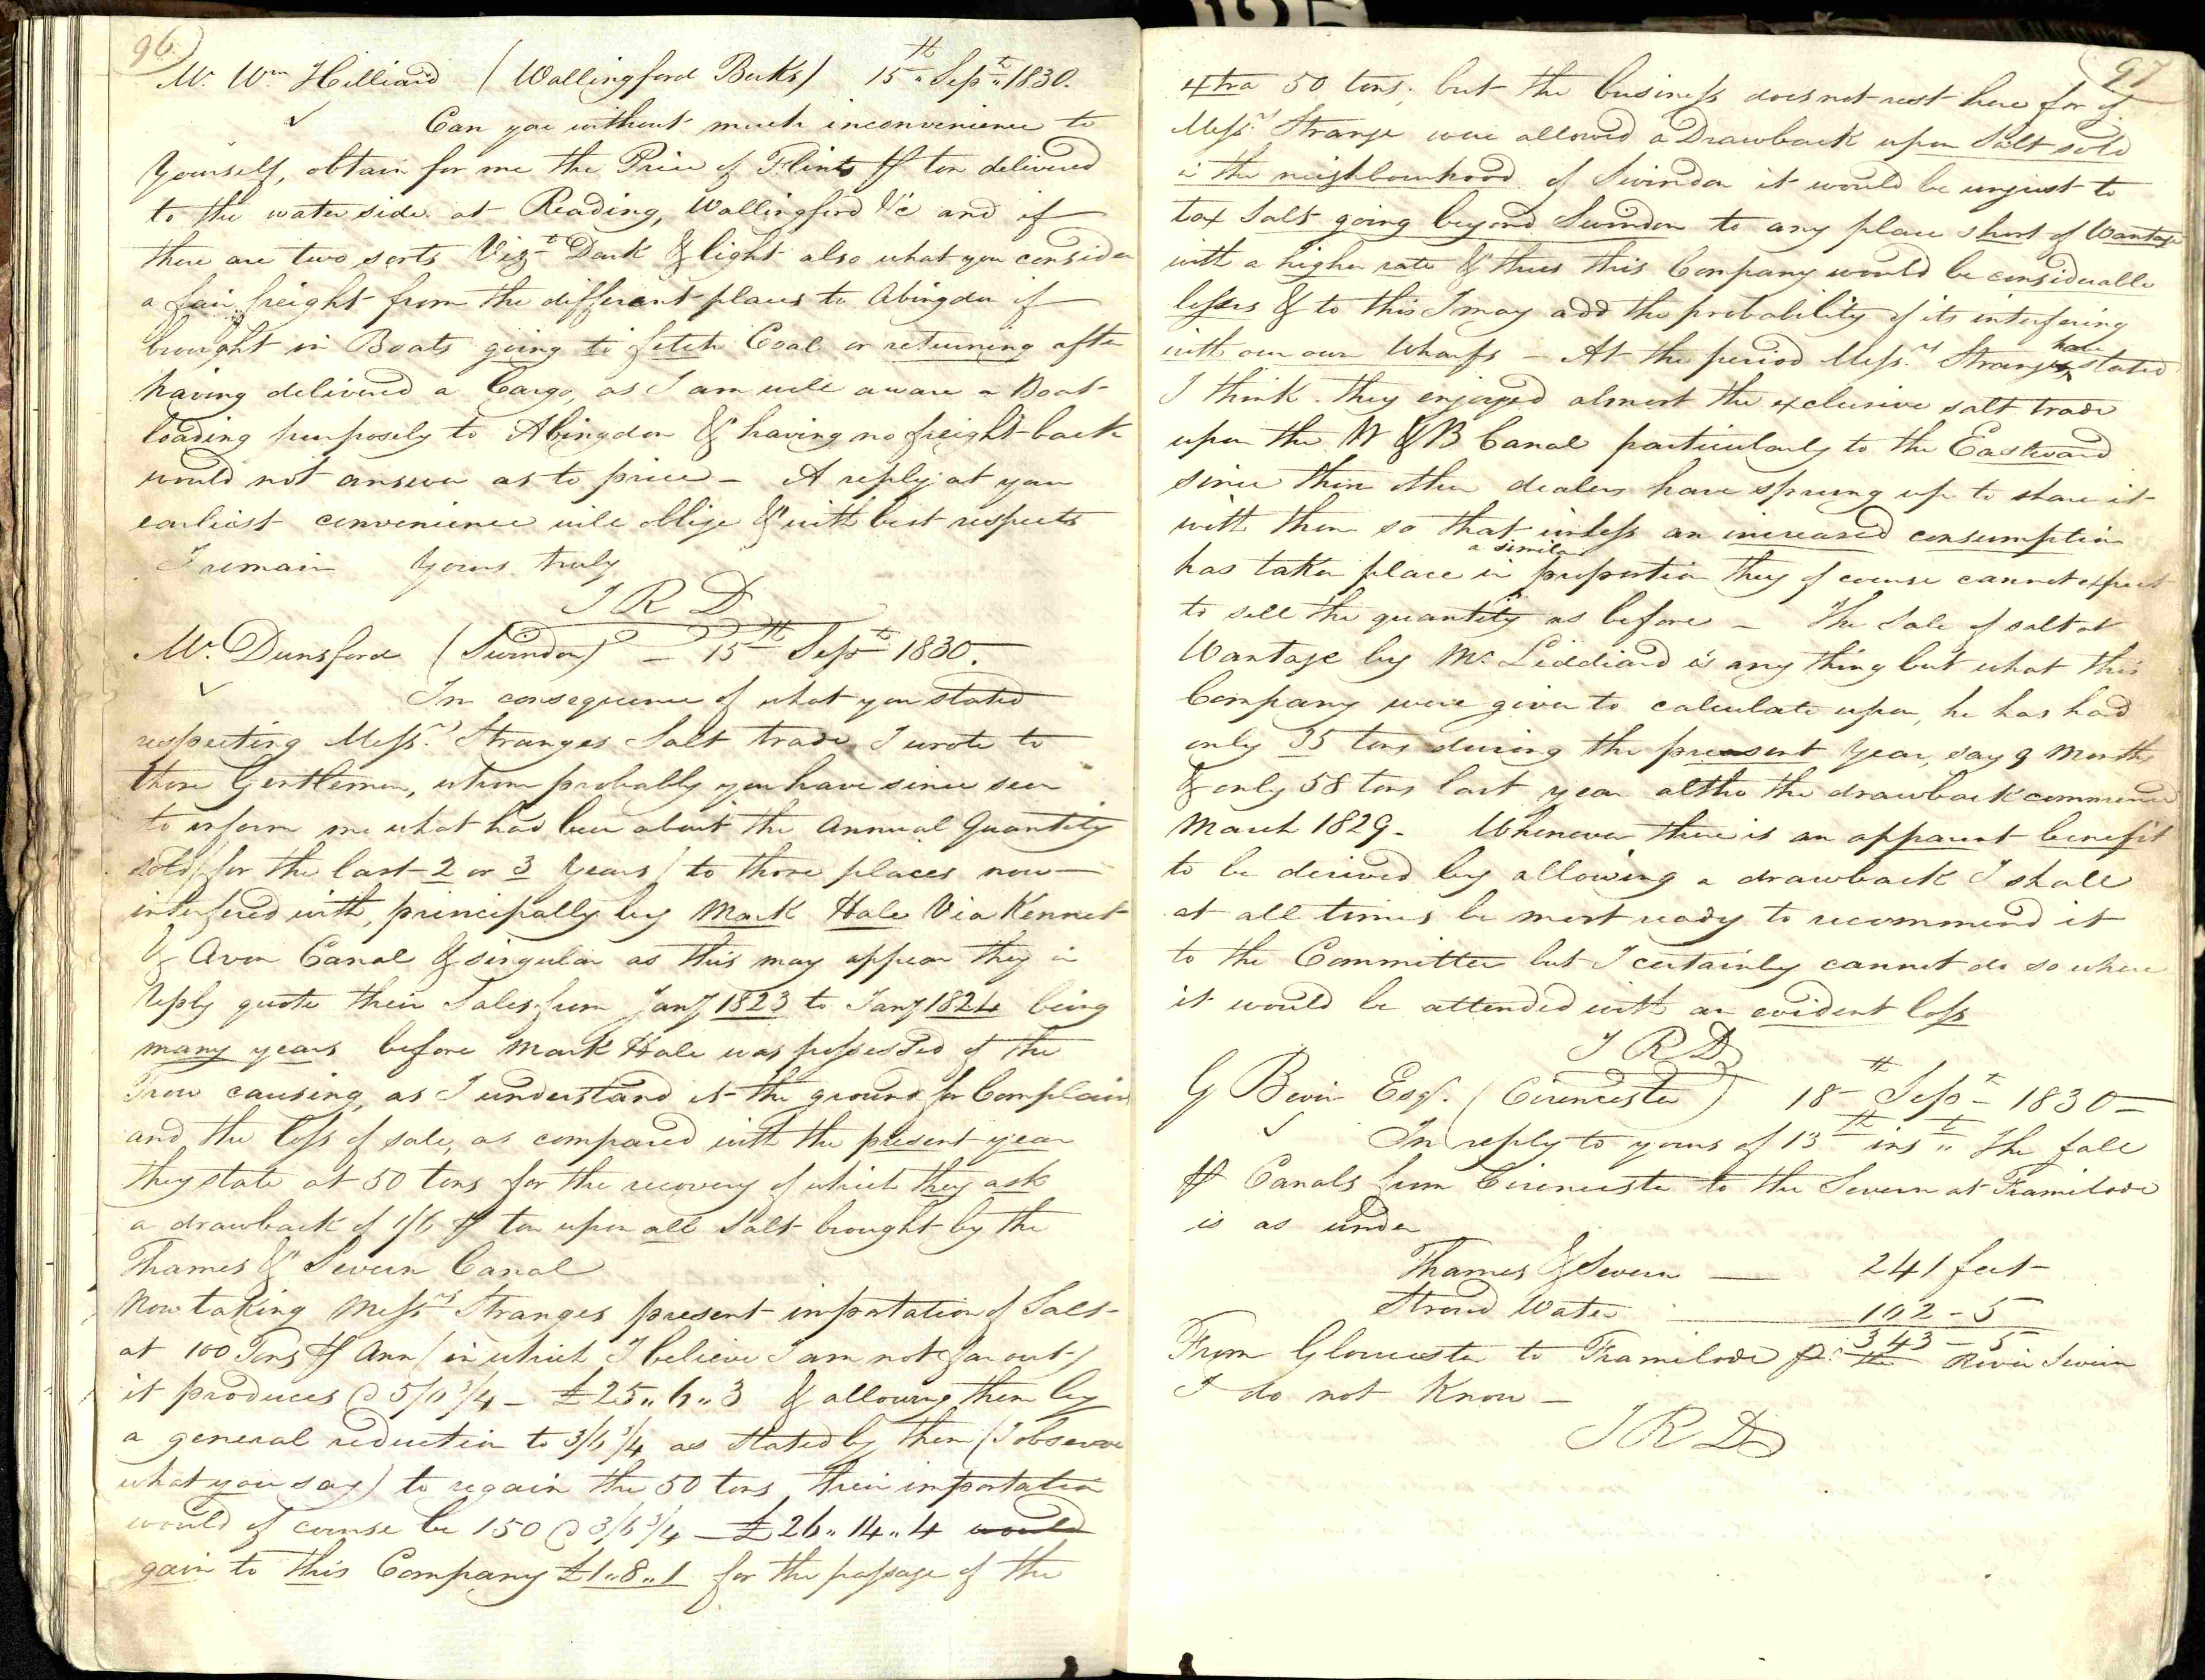 96
Mr. Wm Hilliard (Wallingford Berks) 15th Sept 1830.
Can you without much inconvenience to
Yourself, obtain for me the Price of Flints pr ton delivered
to the water side at Reading, Wallingford &c and if
there are two sorts Vizt Dark & light also what you consider
a fair freight from the different places to Abingdon if
brought in Boats going to fetch Coal or returning after
having delivered a Cargo, as I am well aware a Boat
loading purposely to Abingdon & having no freight back
would not answer as to price – A reply at your
earliest convenience will oblige & with best respects
I remain Yours truly
J R D
Mr. Dunsford (Swindon) – 15th Sept 1830.
In consequence of what you stated
respecting Messrs Stranges Salt trade I wrote to
those Gentlemen, whom probably you have since seen
to inform me what had been about the Annual Quantity
sold (for the last 2 or 3 Years) to those places now
interfered with, principally by Mark Hale Via Kennet
& Avon Canal & singular as this may appear they in
reply quote their Sales from Jany 1823 to Jany 1824 being
many years before Mark Hale was possessed of the
Trow causing, as I understand it the ground for Complaint
and the loss of sale, as compared with the present year
they state at 50 tons for the recovery of which they ask
a drawback of 1/6 pr ton upon all Salt brought by the
Thames & Severn Canal
Now taking Messrs Stranges present importation of Salt
at 100 Tons pr Ann (in which I believe I am not far out)
it produces @ 5/0 3/4 – £25..6..3 & allowing them by
a general reduction to 3/6 3/4 as stated by them (I observe
what you say) to regain the 50 tons their importation
would of course be 150 @ 3/6 3/4 – £26..14..4 would
gain to this Company £1..8..1 for the passage of the
97
extra 50 tons; but the business does not rest here for if
Messrs Strange were allowed a Drawback upon Salt sold
in the neighbourhood of Swindon it would be unjust to
tax Salt going beyond Swindon to any place short of Wantage
with a higher rate & thus this Company would be considerable
losers & to this I may add the probability of its interfering
with our own Wharfs – At the period Messrs Stranges have stated
I think they enjoyed almost the exclusive salt trade
upon the W & B Canal particularly to the Eastward
since then other dealers have sprung up to share it
with them so that unless an increased consumption
has taken place in a similar proportion they of course cannot expect
to sell the quantity as before – The Sale of salt at
Wantage by Mr Liddiard is any thing but what this
Company were given to calculate upon, he has had
only 35 tons during the present Year, say 9 Months
& only 58 tons last year altho the drawback commenced
March 1829 – Whenever there is an apparent benefit
to be derived by allowing a drawback I shall
at all times be most ready to recommend it
to the Committee but I certainly cannot do so where
it would be attended with an evident loss
J R D
G Bevir Esqr. (Cirencester) 18th Sept – 1830 –
In reply to yours of 13th inst The fall
pr Canals from Cirencester to the Severn at Framilode
is as under
Thames & Severn — 241 feet
Stroud Water — 102 – 5
343 – 5
From Gloucester to Framilode pr the River Severn
I do not Know –
J R D